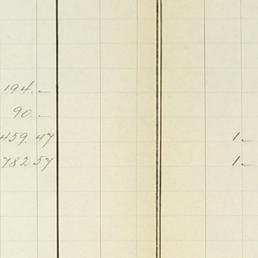 194.–
90.–
459.47 1.–
782 57 1.–